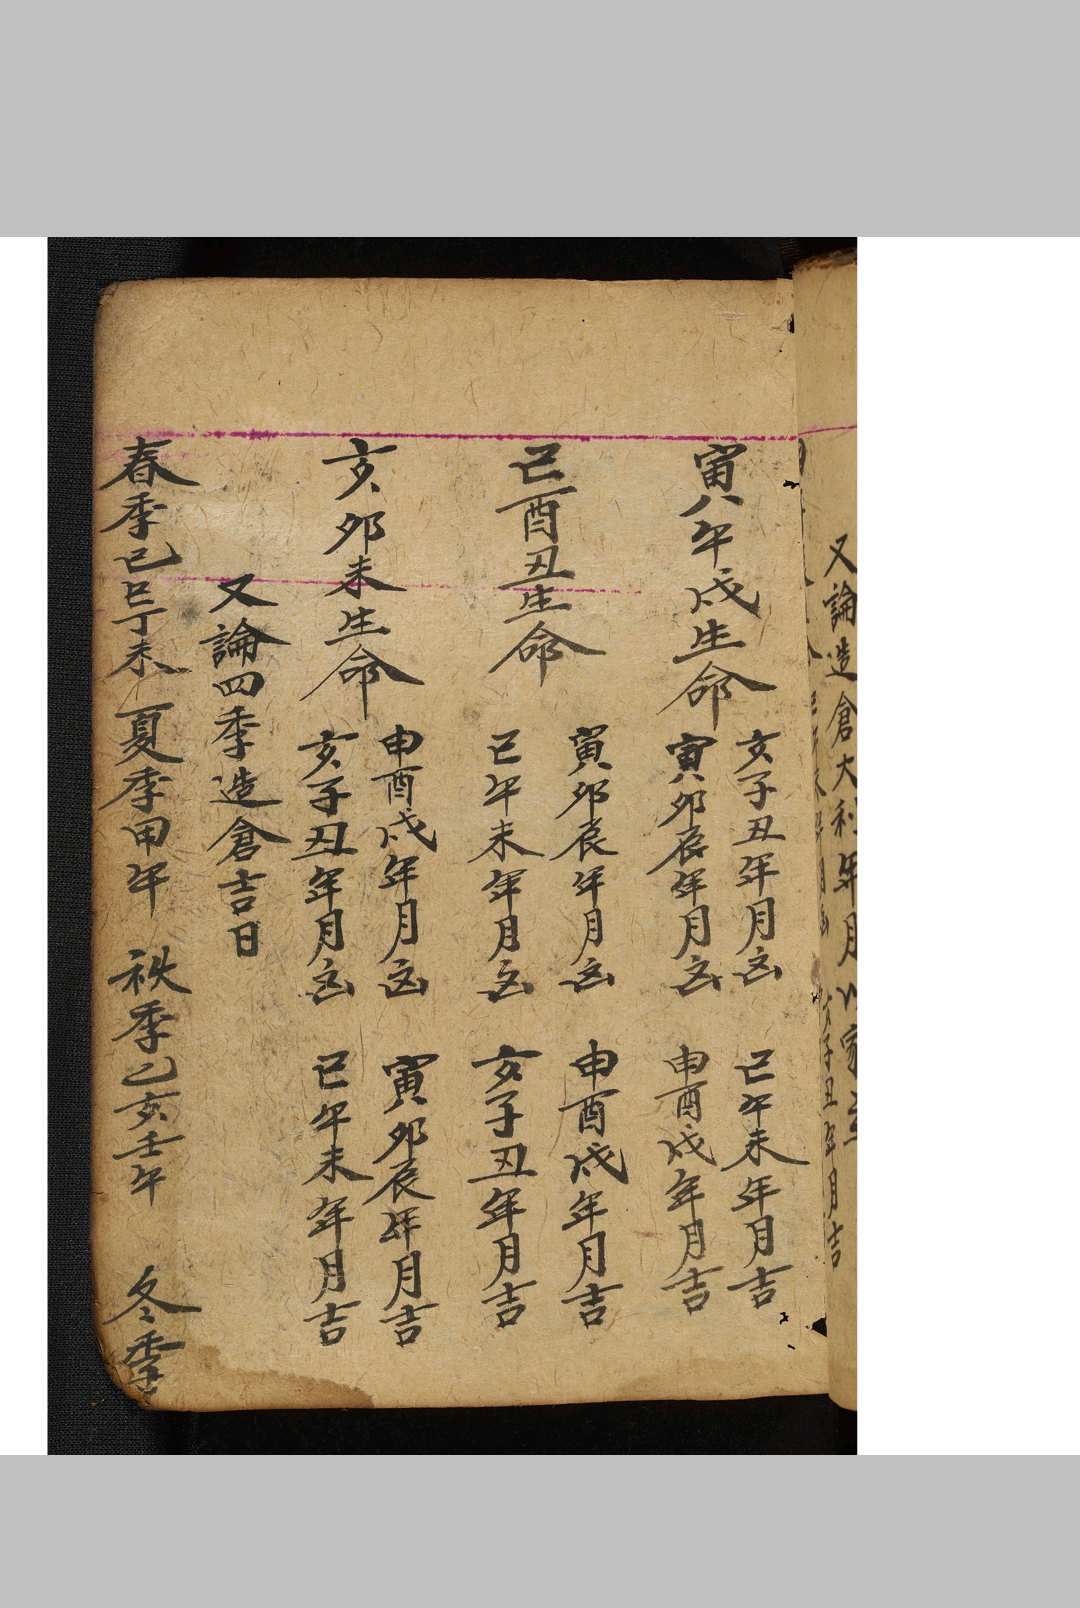 又論造倉大利年月
寅午戌生命
亥子丑年月凶 巳午未年月吉
寅卯辰年月凶 申酉戌年月吉
巳酉丑生命
寅卯辰年月凶 申酉戌年月吉
巳午未年月凶 亥子丑年月吉
亥卯未生命
申酉戌年月凶 寅卯辰年月吉
亥子丑年月凶 巳午未年月吉
又論四季造倉吉日
春季己巳丁未 夏季甲午 秩季乙亥壬午 冬季